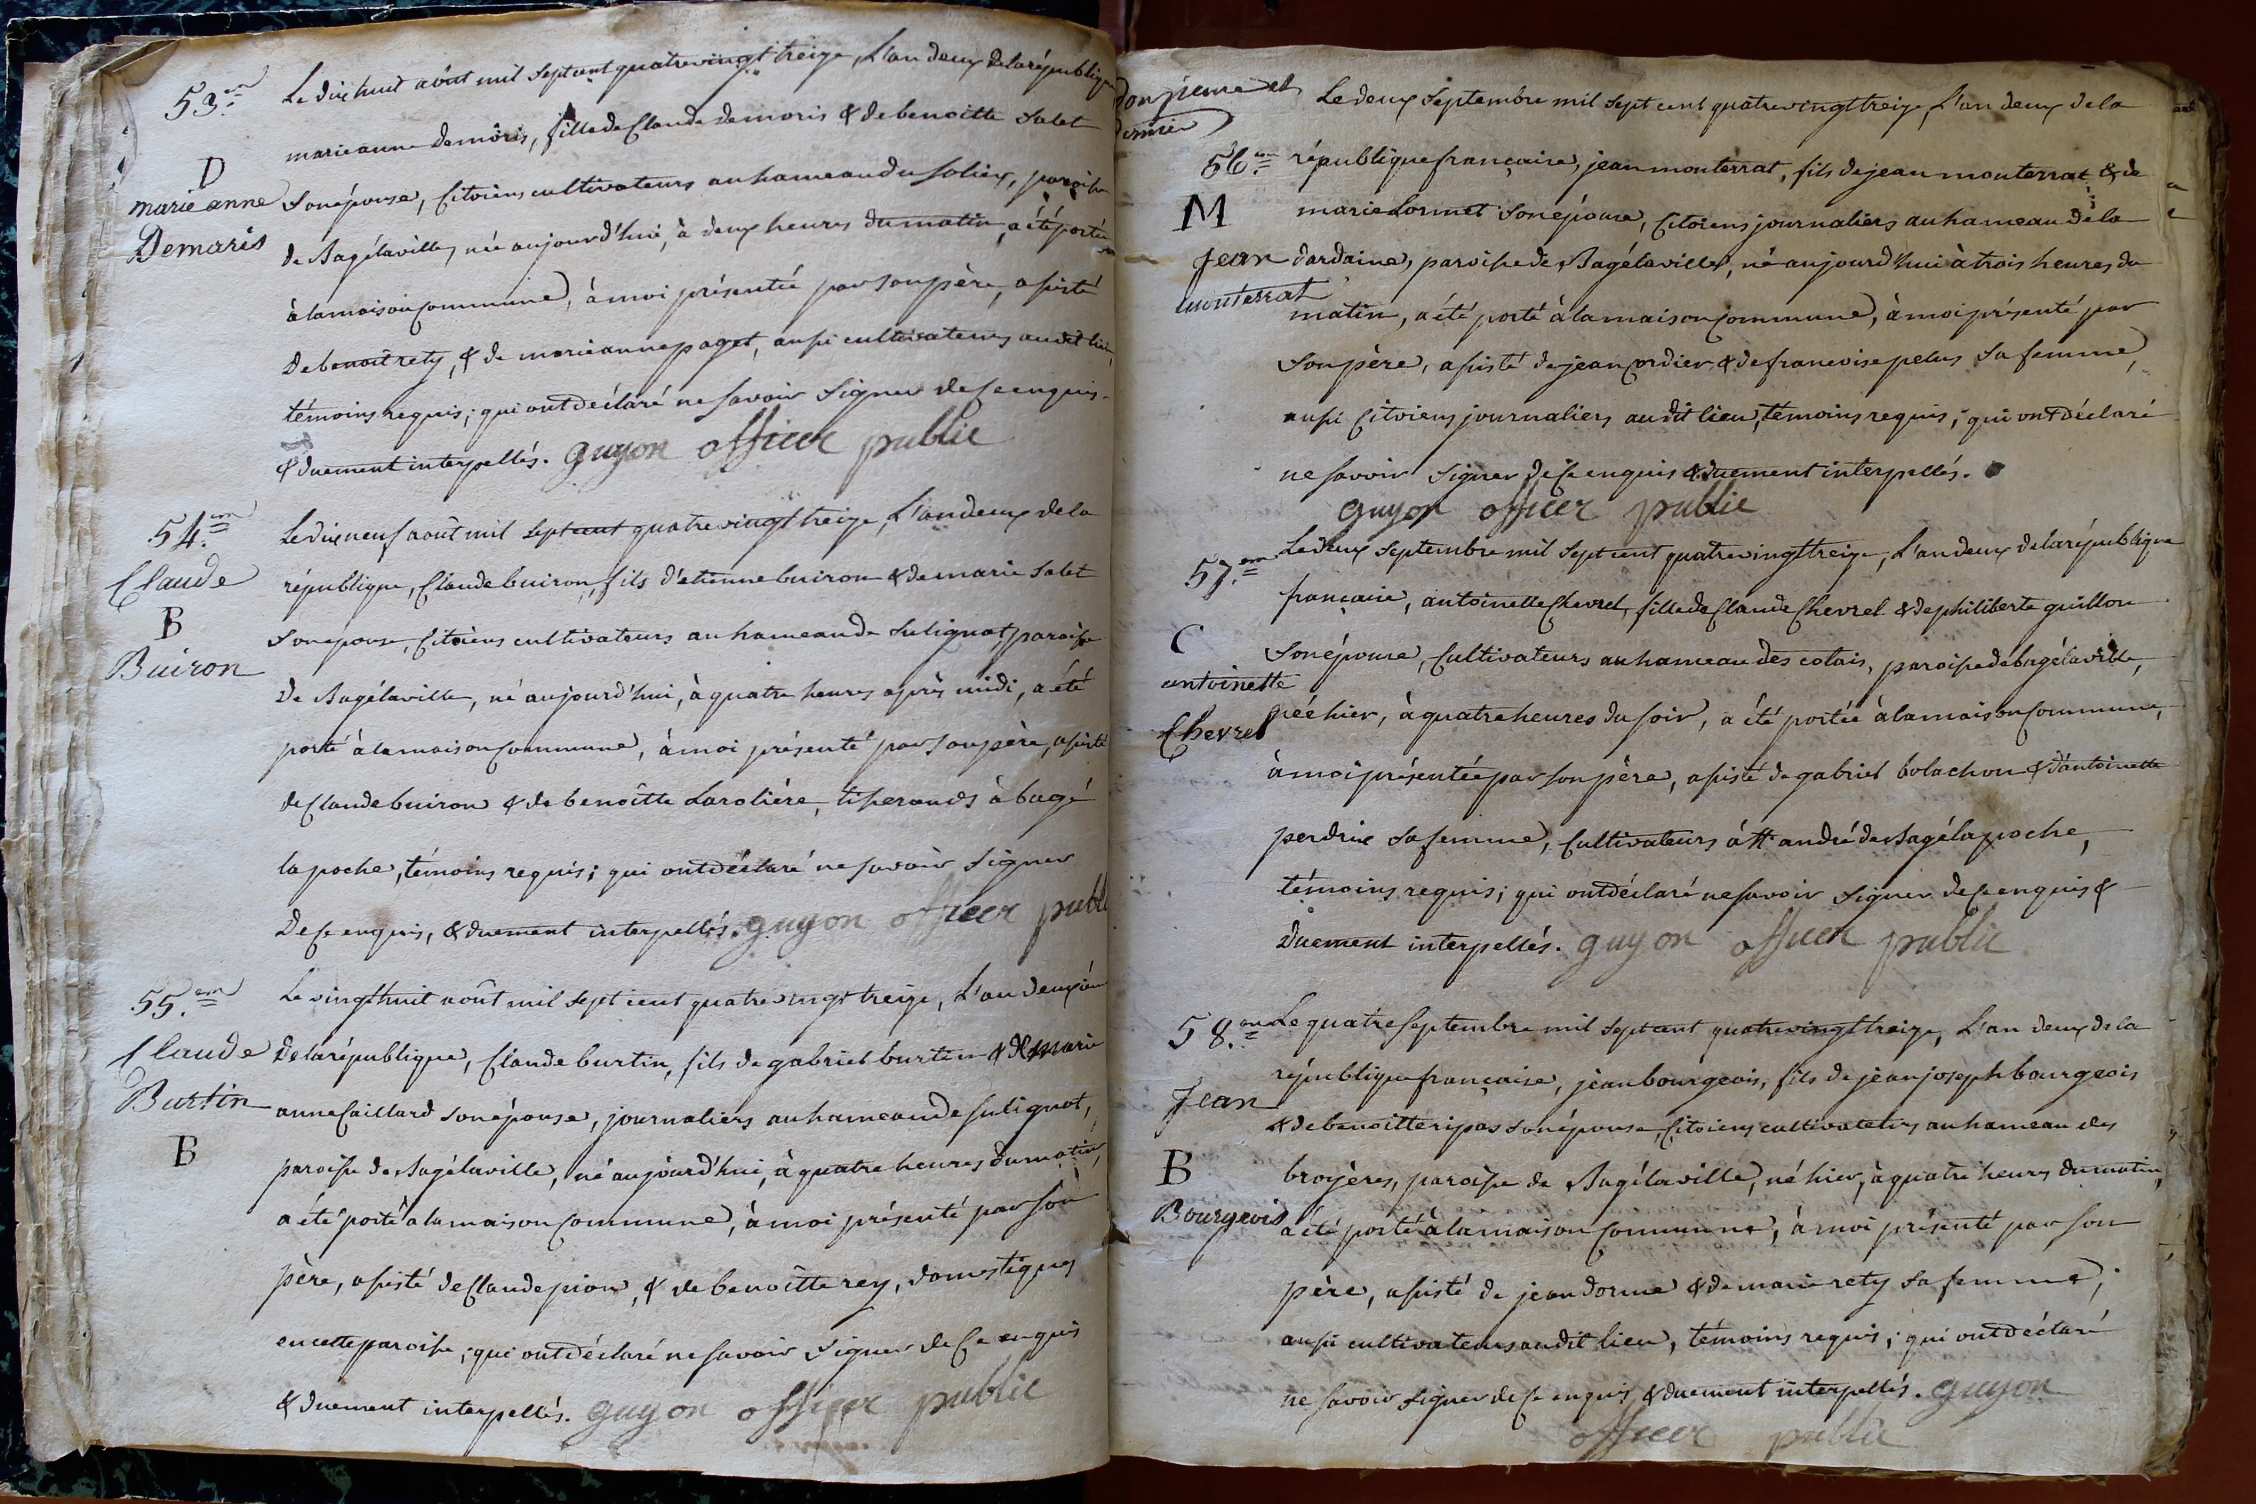 53.em
Le dix huit août mil sept cent quatre vingt treize, L'an deux de la république
marie anne demôris, fille de Claude demoris & de benoitte salet
D
marie anne
Demaris
son épouse, Citoiens cultivateurs au hameau du soliex, paroisse
de Bagélaville, née aujourd'hui, à deux heures du matin, a été portée
à la maison Commune, à moi présentée par son père, assisté
de benoit rety, & de marie anne paget, aussi cultivateurs audit lieu,
témoins requis; qui ont déclaré ne savoir signer de Ce enquis
& duement interpellés. guyon officer public
54.em
Claude
B
Buiron
Le dix neuf août mil sept cent quatre vingt treize, L'an deux de la
république, Claude buiron, fils d'etienne buiron & de marie salet
son epouse, Citoiens cultivateurs au hameau de sulignat, paroisse
de Bagélaville, né aujourd'hui, à quatre heures après midi, a été
porté à la maison Commune, à moi présenté par son père, assisté
de Claude buiron & de benoîtte Laroliére, tisserands à bagé
la poche, témoins requis; qui ont déclaré ne savoir signer
de Ce enquis, & duement interpellés. guyon officer publi
55.em
Claude
Burtin
B
Le vingt huit août mil sept cent quatre vingt treize, L'an deuxièm
de la république, Claude burtin, fils de gabriel burtin & de marie
anne Caillard son épouse, journaliers au hameau de sulignat,
paroisse de Bagélaville, né aujourd'hui, à quatre heures du matin,
a été porté a la maison Commune, à moi présenté par son
père, assisté de Claude pion, & de benoîtte rey, domestiques
en cette paroisse; qui ont déclaré ne savoir signer de Ce enquis
& duement interpellés. guyon officer public
onzieme et
dernier
56.em
M
Jean
monterrat
Le deux septembre mil sept cent quatre vingt treize, L'an deux de la
république française, jean monterrat, fils de jean monterrat & de
marie Lormet son épouse, Citoiens journaliers au hameau de la
dardaine, paroisse de Bagélaville, né aujourd'hui à trois heures du
matin, a été porté à la maison Commune, à moi présenté par
son père, assisté de jean Cordier & de francoise pelus sa femme,
aussi Citoiens journaliers audit lieu, témoins requis; qui ont déclaré
ne savoir signer de Ce enquis & duement interpellés.
guyon officer public
57.em
C
antoinette
Chevrel
Le deux septembre mil sept cent quatre vingt treize, L'an deux de la république
française, antoinette Chevrel, fille de Claude Chevrel & de philiberte guillon
son épouse, Cultivateurs au hameau des colais, paroisse de bagélaville,
née hier, à quatre heures du soir, a été portée à la maison Commune,
à moi présentée par son père, assisté de gabriel bolachon & d'antoinette
perdrix sa femme, Cultivateurs à St andré de Bagélapoche,
témoins requis; qui ont déclaré ne savoir signer de Ce enquis &
duement interpellés. guyon officer public
58.em
Jean
B
Bourgeois
Le quatre septembre mil sept cent quatre vingt treize, L'an deux de la
république française, jean bourgeois, fils de jean joseph bourgeois
& de benoitte ripas son épouse, Citoiens cultivateurs au hameau des
broyères, paroisse de Bagélaville, né hier, à quatre heures du matin,
a été porté à la maison Commune, à moi présenté par son
père, assisté de jean dorme & de marie rety sa femme,
aussi cultivateurs audit lieu, témoins requis; qui ont déclaré
ne savoir signer de Ce enquis & duement interpellés. guyon
officer public